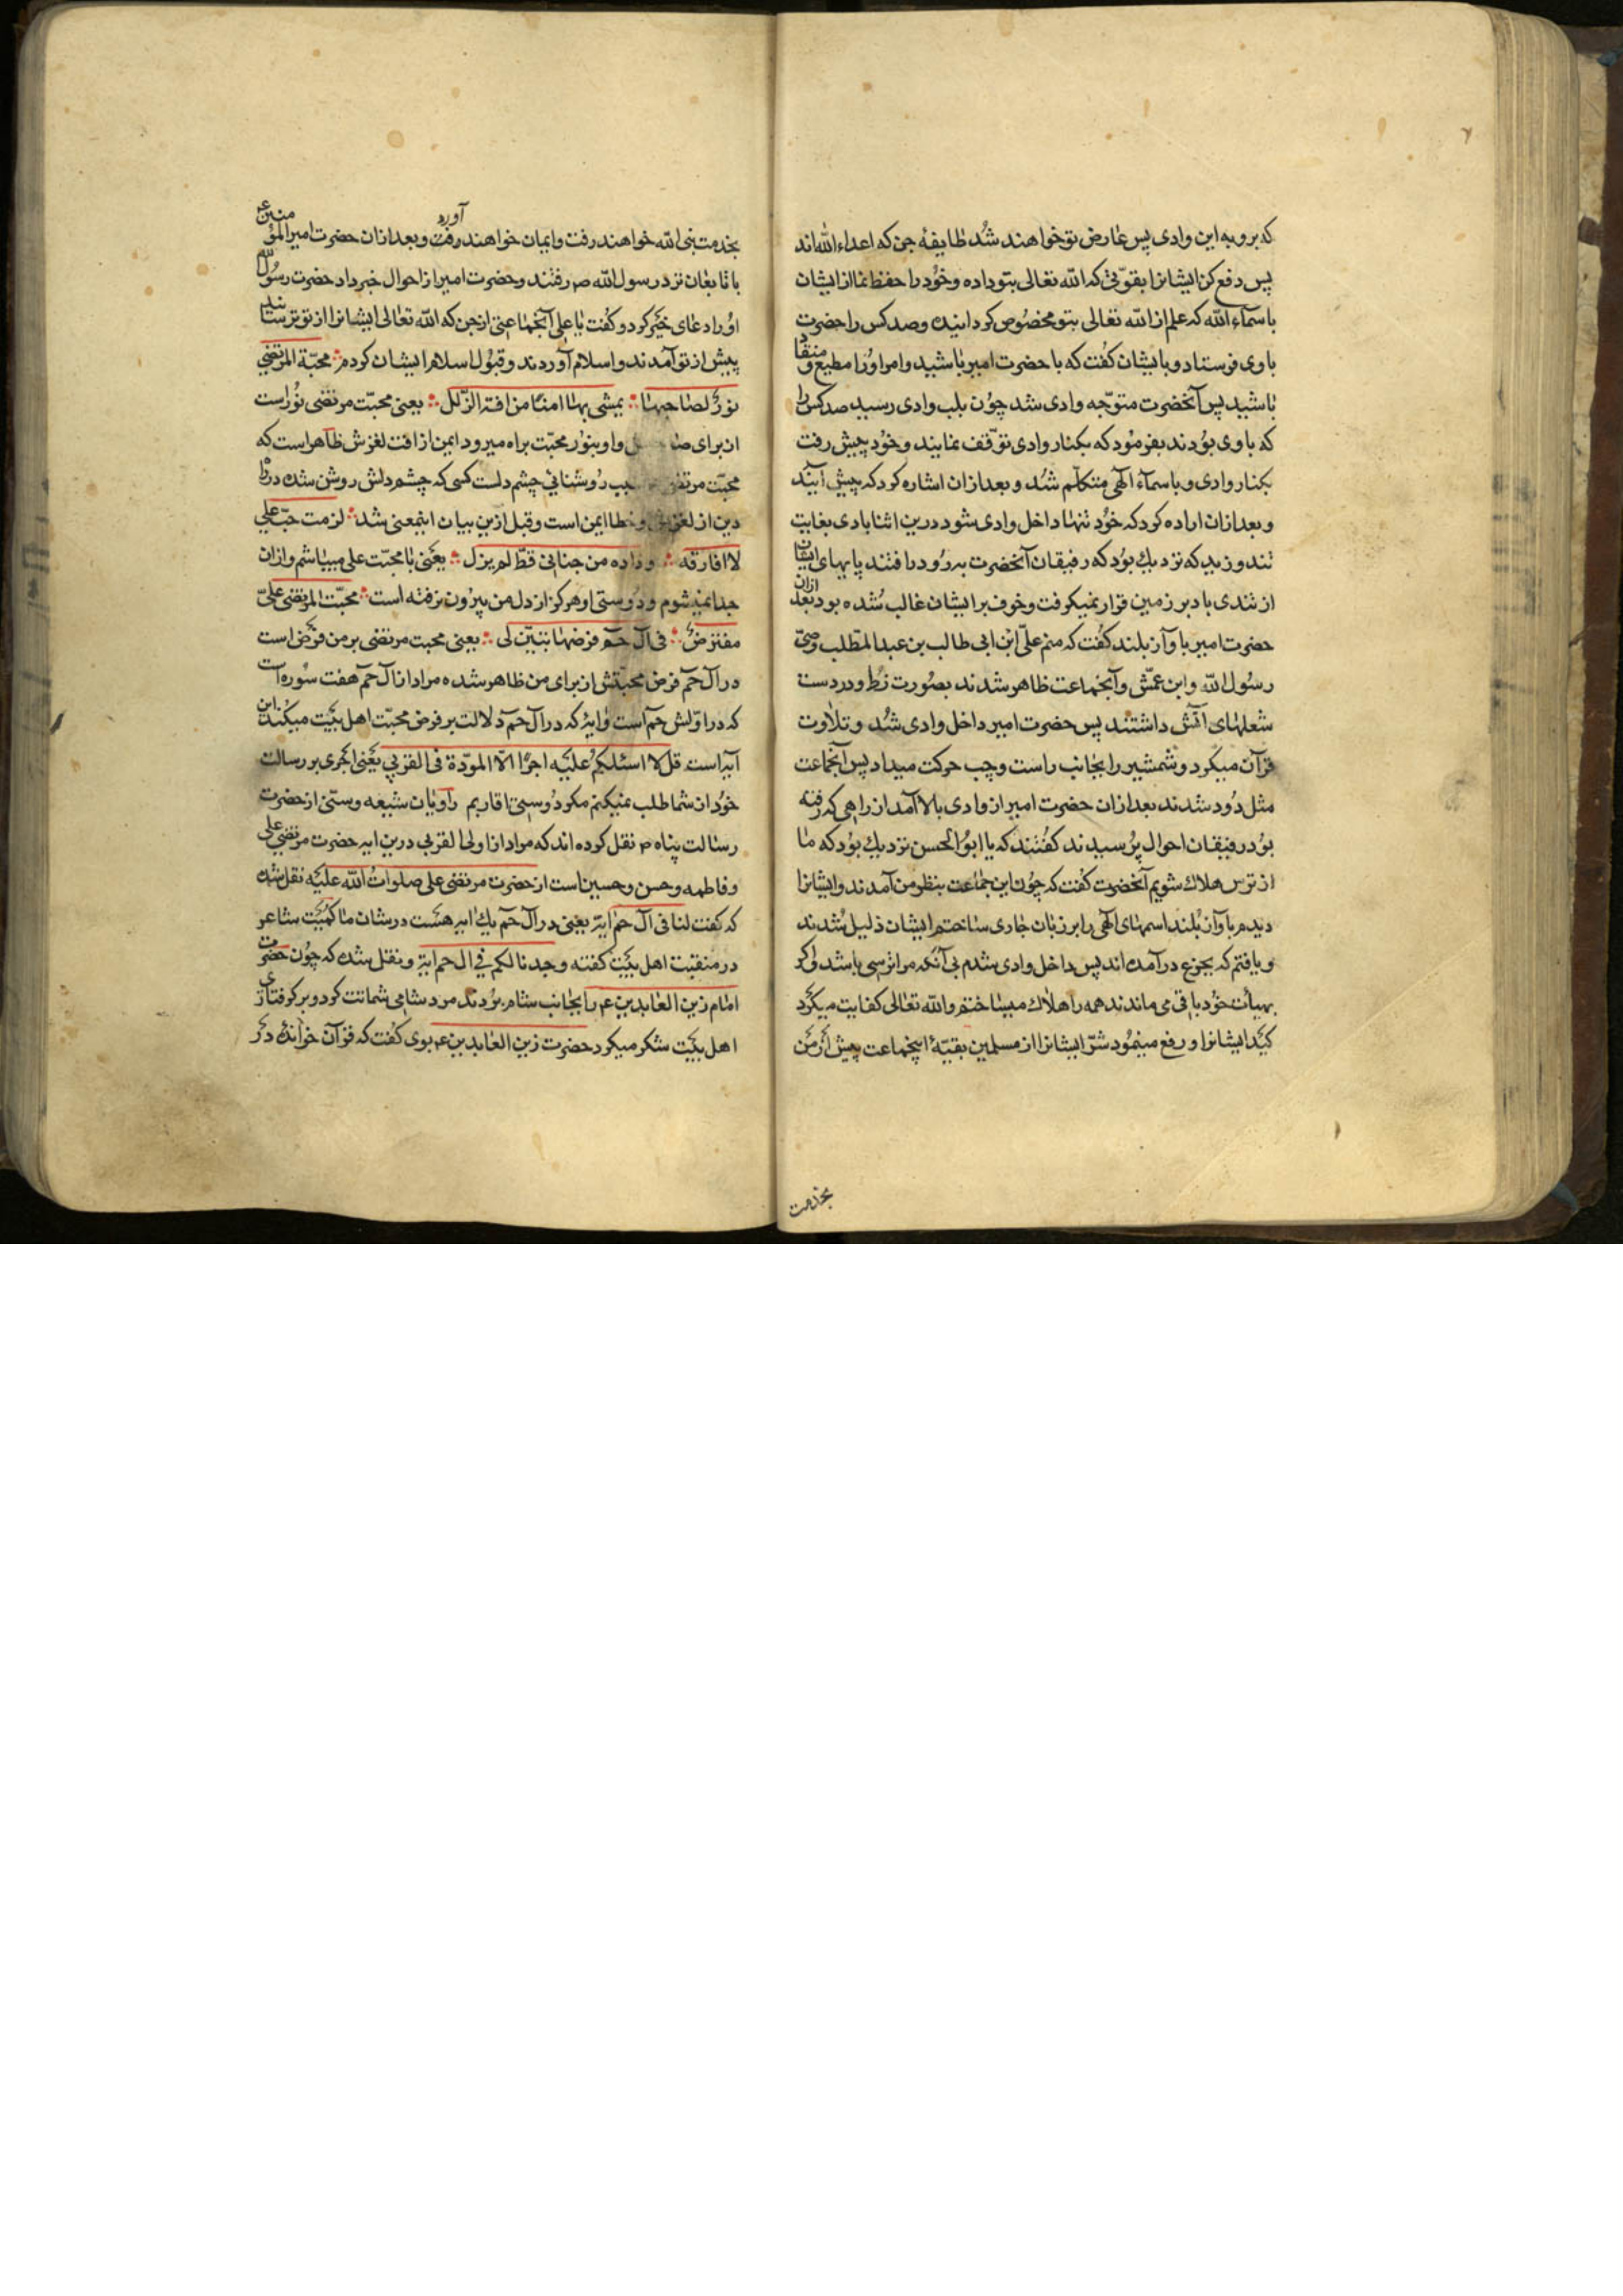 که برو به این وادی پس عارض تو خواهند شد طایفهٔ جن که اعداء الله اند
پس دفع کن ایشانرا بقوّتی که الله تعالی بتو داده و خود را حفظ نما از ایشان
باسماء الله که علم از الله تعالی بتو مخصوص کردانیده و صد کس را حضرت
با وی فرستاد و بایشان کفت که با حضرت امیر باشید و امر او را مطیع و منقاد
باشید پس آنحضرت متوّجه وادی شد چون بلب وادی رسید صد کس را
که با وی بودند بفرمود که بکنار وادی توّقف نمایند و خود پیش رفت
بکنار وادی و باسماء الهی متکلّم شد و بعد ازان اشاره کرد که پیش آیید
و بعد ازان اراده کرد که خود تنها داخل وادی شود درین اثنا بادی بغایت
تند وزید که نزدیك بود که رفیقان آنحضرت برو درافتند پایهای ایشان
از تندی باد بر زمین قرار نمیکرفت و خوف بر ایشان غالب شده بود بعد ازان
حضرت امیر باواز بلند کفت که منم علیّ ابن ابی طالب بن عبد المطّلب وصیّ
رسول الله و ابن عمّش و آنجماعت ظاهر شدند بصورت زط و در دست
شعلهای اتش داشتند پس حضرت امیر داخل وادی شد و تلاوت
قرآن میکرد و شمشیر را بجانب راست و چپ حرکت میداد پس آنجماعت
مثل دود شدند بعد ازان حضرت امیر از وادی بالا آمد از راهی که رفته
بود رفیقان احوال پرسیدند کفتند که یا ابو الحسن نزدیك بود که ما
از ترس هلاك شویم آنحضرت کفت که چون این جماعت بنظر من آمدند و ایشانرا
دیدم باواز بلند اسمهای الهی را بر زبان جاری ساختم ایشان ذلیل شدند
و یافتم که بجزع درآمده اند پس داخل وادی شدم بی آنکه مرا ترسی باشد و اکر
بهیأت خود باقی می ماندند همه را هلاك میساختم و الله تعالی کفایت میکرد
کید ایشانرا و رفع مینمود شرّ ایشانرا از مسلمین بقیّهٔ اینجماعت پیش از من
بخدمت
بخدمت نبی الله خواهند رفت و ایمان خواهند آورد و بعد ازان حضرت امیر المؤمنین ع
با تابعان نزد رسول الله ص رفتند و حضرت امیر از احوال خبر داد حضرت رسول الله
او را دعای خیر کرد و کفت یا علی آنجماعتی از جن که الله تعالی ایشانرا از تو ترسانید
پیش از تو آمدند و اسلام آوردند و قبول اسلام ایشان کردم محبّة المرتضی
نور لصاحبها یمشی بها امنا من افة الزّلل یعنی محبّت مرتضی نور است
از برای و او بنور محبّت براه میرود ایمن از افت لغزش ظاهر است که
محبّت مرتضی روشنایی چشم دلست کسی که چشم دلش روشن شده در راه
دین از لغزش و خطا ایمن است و قبل ازین بیان اینمعنی شد لزمت حبّ علی
لا افارقه و داده من جنانی قطّ لم یزل یعنی با محبّت علی میباشم و ازان
جدا نمیشوم و دوستی او هرکز از دل من بیرون نرفته است محبّت المرتضی علیّ
مفترض فی آل حم فرضها تبیّن لی یعنی محبت مرتضی بر من فرض است
در آل حم فرض محبّتش از برای من ظاهر شده مراد از آل حم هفت سوره است
که در اوّلش حم است و ایهٔ که در آل حم دلالت بر فرض محبّت اهل بیت میکند این
آیه است قل لا اسئلکم علیه اجرا الّا المودّة فی القربی یعنی اجری بر رسالت
خود از شما طلب نمیکنم مکر دوستی اقاربم راویان شیعه و سنّی از حضرت
رسالت پناه ص نقل کرده اند که مراد از اولی القربی درین ایه حضرت مرتضی علی
و فاطمه و حسن و حسین است از حضرت مرتضی علی صلوات الله علیه نقل شده
که کفت لنا فی آل حم ایة یعنی در آل حم یك ایه هست در شان ما کمیت شاعر
در منقبت اهل بیت کفته وجدنا لکم فی ال حم ایة و نقل شده که چون حضرت
امام زین العابدین ع را بجانب شام بردند مرد شامی شماتت کرد و بر کرفتاری
اهل بیت شکر میکرد حضرت زین العابدین ع بوی کفت که قرآن خوانده در